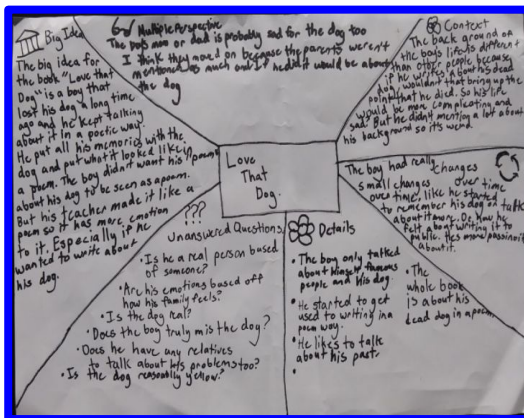 Big Idea
The big idea for
the book "Love that
Dog" is a boy that
lost his dog a long time
ago and he kept talking
about it in a poetic way.
He put all his memories with the
dog and put what it looked like in
a poem. The boy didn't want his poem
about his dog to be seen as a poem.
But his teacher made it like a
poem so it has more emotion
to it. Especially if he
wanted to write about
his dog.
Multiple Perspective
The boys mom or dad is probably sad for the dog too
I think they moved on because the parents weren't
mentioned as much and if he did it would be about
the dog
Context
The back around of
the boys life is different
than other people because
if he writes about his dead
dog wouldn't that bring up the
point that he died. So his life
would be more complicating and
sad. But he didn't mention a lot about
his background so its weird.
Love
That
Dog.
changes
over time
The boy had really
small changes
over time, like he started
to remember his dog and talk
about it more. Or, How he
felt about writing it to
public. Hes more passinoit
about it.
???
Unanswered Questions
• Is he a real person based
of someone?
• Are his emotions based off
how his family feels?
• Is the dog real?
• Does the boy truly mis the dog?
• Does he have any relatives
to talk about his problems too?
• Is the dog reasonably yellow?
Details
• The boy only talked
about himself, famous
people and his dog.
• He started to get
used to writing in a
poem way.
• He likes to talk
about his past.
• The
whole book
is about his
dead dog in a poem.